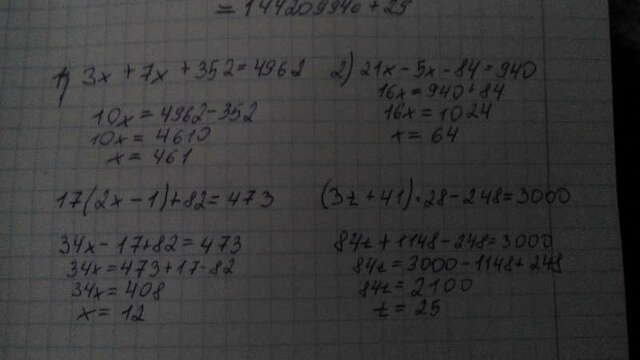 = 144209940 + 29
1) 3x + 7x + 352 = 4962
10x = 4962 - 352
10x = 4610
x = 461
2) 21x - 5x - 84 = 940
16x = 940 + 84
16x = 1024
x = 64
17(2x - 1) + 82 = 473
34x - 17 + 82 = 473
34x = 473 + 17 - 82
34x = 408
x = 12
(3z + 41) · 28 - 248 = 3000
84z + 1148 - 248 = 3000
84z = 3000 - 1148 + 248
84z = 2100
z = 25